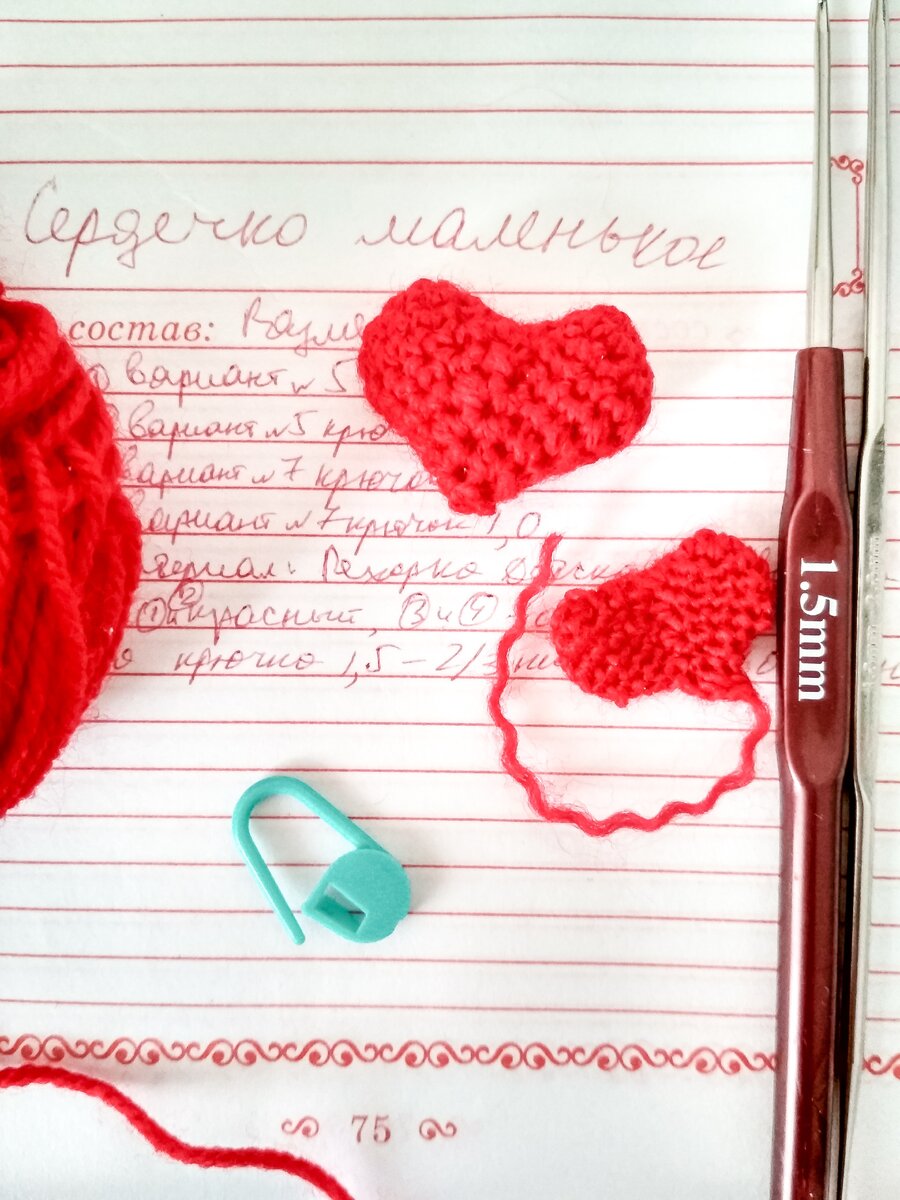 Сердечко маленькое
состав:
вариант №5
вариант №5 крю
вариант №7 крючо
вариант №7 крючок 1,0
териал: Пехорка Детск
① и ② красный, ③ и ④
я крючка 1,5 - 2/3
1.5mm
75